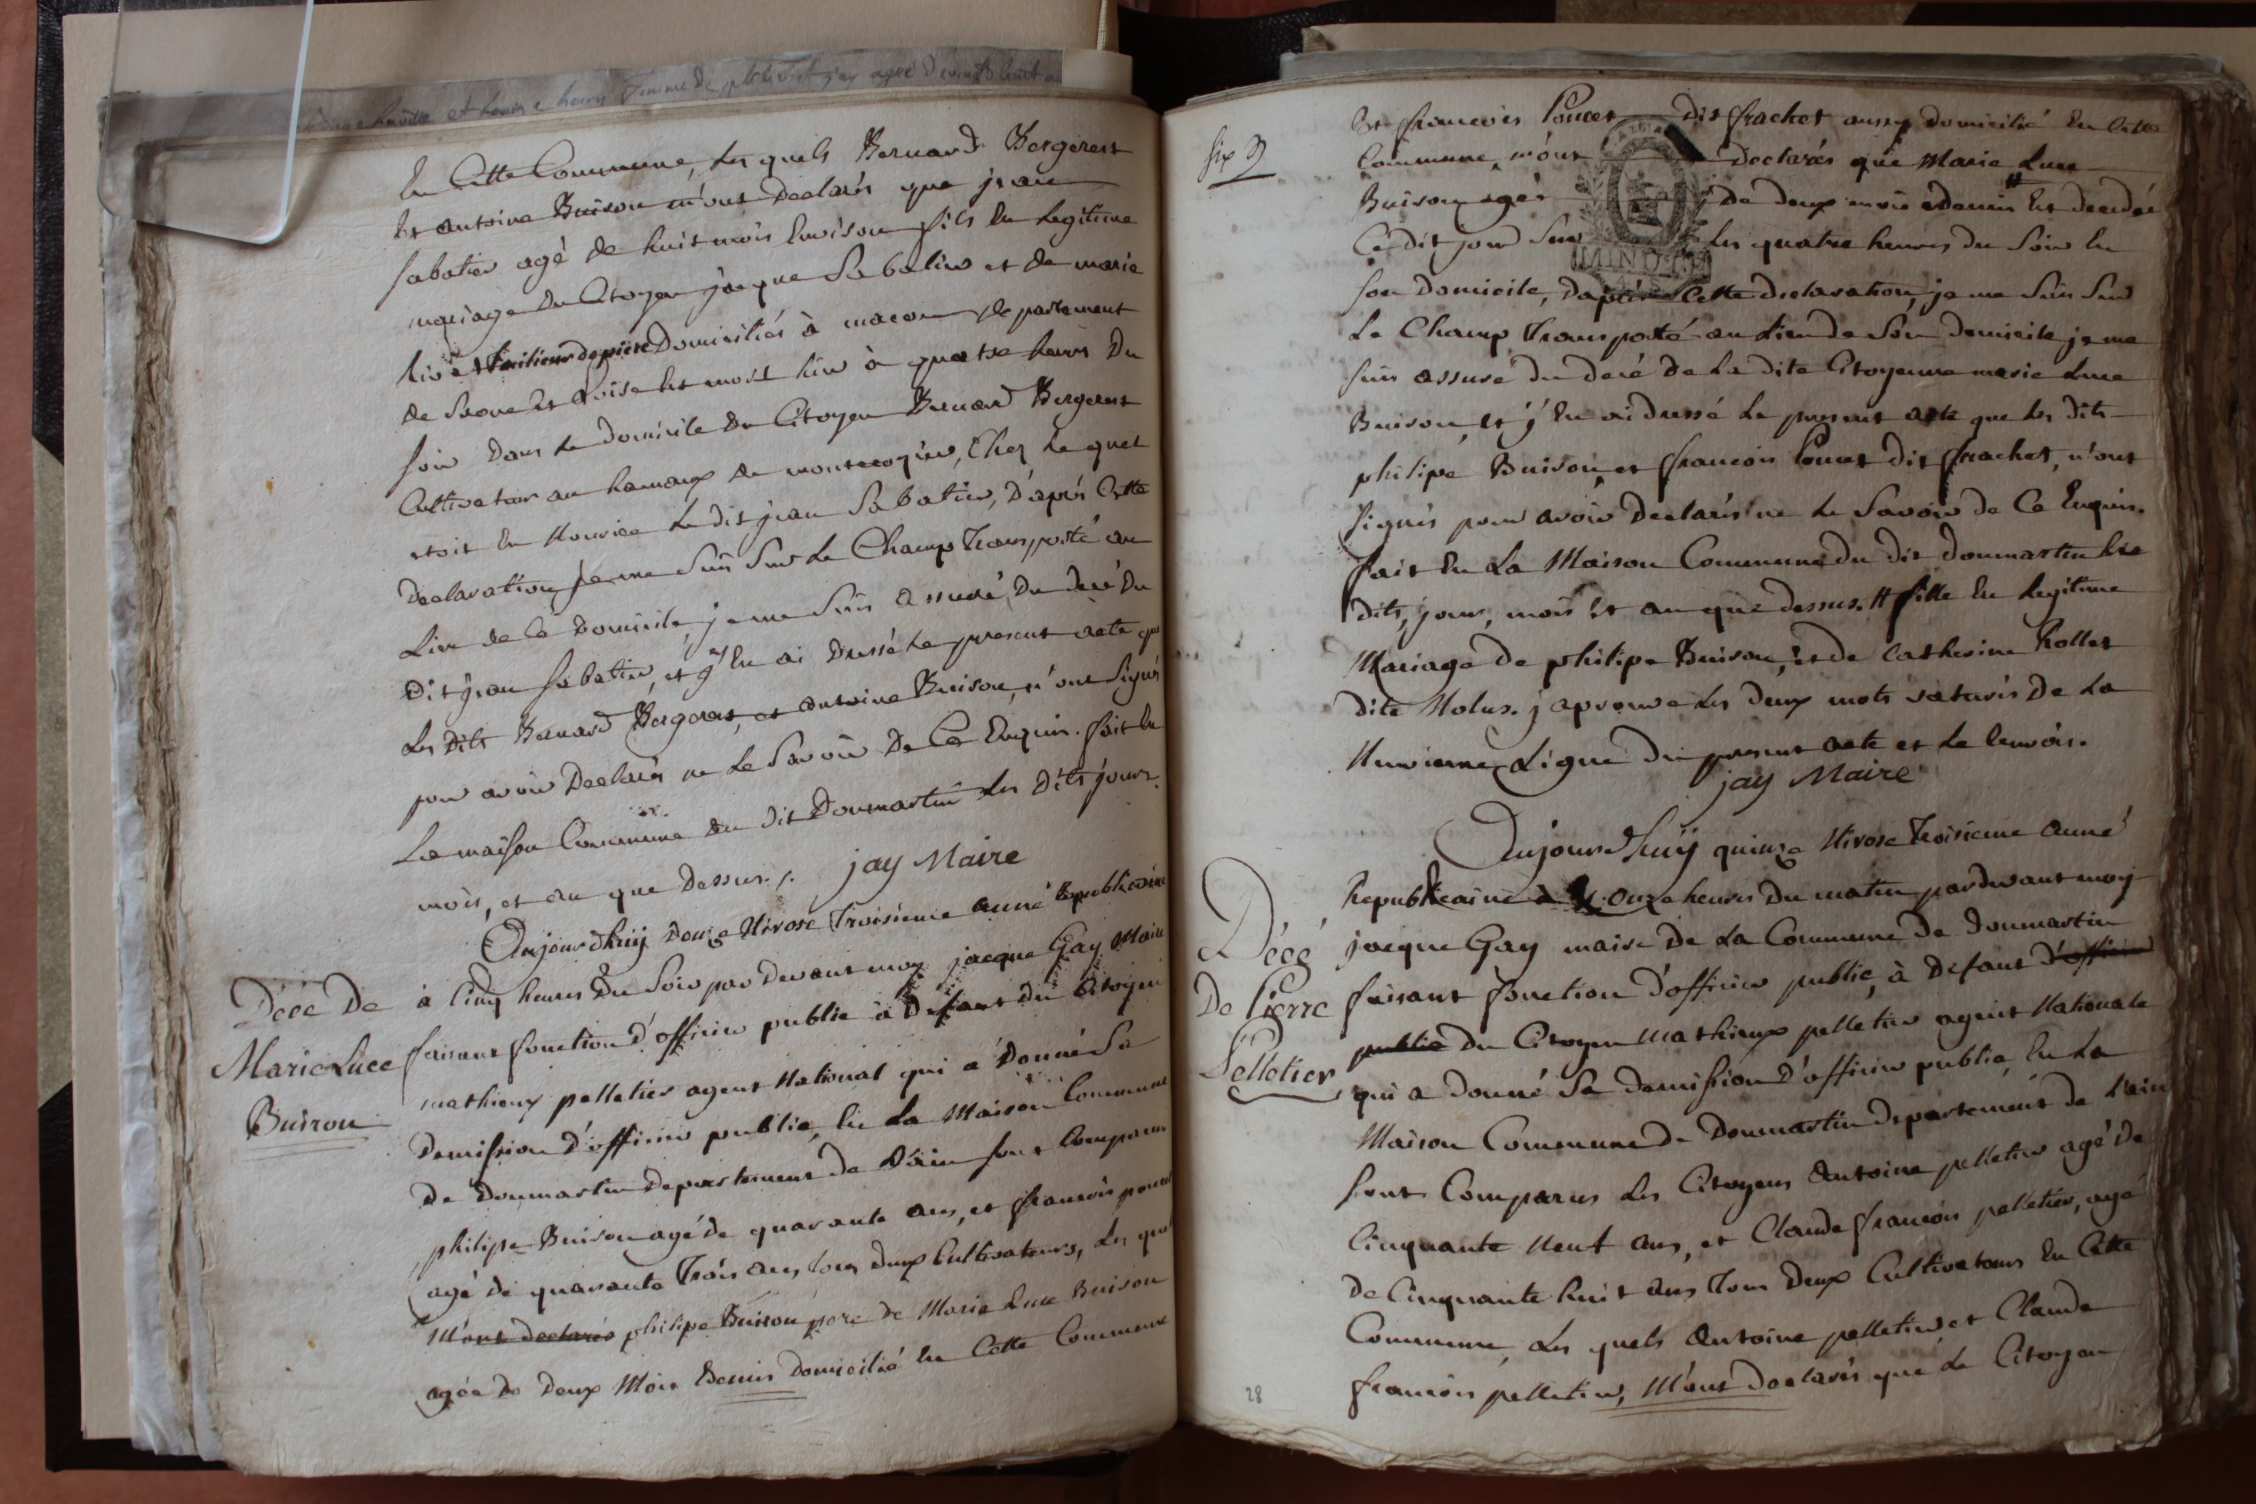 En Cette Commune, Les quels Bernard Bergeret
Et antoine Buison m'ont Declarés que jean
Sabatier agé de huit mois Environ fils En Legitime
mariage du Citoyen jacque Sabatier et de marie
tailieur de piere Domiciliés à macon departement
de Saone Et Loise Est mort hier à quatre heures Du
soir Dans Le Domicile Du Citoyen Bernard Bergeret
Cultivateur au hameaux de Chez Le quel
etoit En Nourice Le dit jean Sabatier, D'après Cette
Declaration je me suis Sur Le Champ Transporté au
Lieu de Ce Domicile, je me suis assuré Du decé Du
Dit jean Sabatier, et j'En ai Dressé Le present acte que
Les Dits Bernard Bergeret, et antoine Buison, n'ont Signés
pour avoir Declarés ne Le Savoir De Ce Enquis. fait En
La maison Commune du dit Dommartin Les Dits jour.
mois, et an que Dessus ./. jay Maire
Décé De
Marie Luce
Buison
Aujourdhuij Douze Nivose Troisieme anné Republicaine
à Cinq heures Du Soir par Devant moy jacque Gay Maire
faisant fonction d'officier public à Defaut du Citoyen
mathieux pelletier agent National qui a Donné Sa
Demission D'officier public, En La Maison Commune
De Dommartin Departement de L'ain sont Comparus
philipe Buison agé de quarante ans, et francois poncet
agé de quarante Trois ans tous deux Cultivateurs, Les quels
M'ont Declarés philipe Buison pere de Marie Luce Buison
agée de Deux Mois Edemis Domicilié En Cette Commune
six
Et francois Poncet dit frachet aussy domicilié En Cette
Commune, m'ont Declarés que Marie Luce
Buison agés de deux mois edemis # Est decedée
Cedit jour Sur Les quatre heures du Soir En
son Domicile, D'après Cette declaration, je me suis Sur
Le Champ Transporté au Lieu de Son domicile je me
suis assuré du decé De La dite Citoyenne marie Luce
Buison, et j'En ai dressé Le present acte que Les dits
philipe Buison, et francois Poncet dit frachet, n'ont
signés pour avoir Declarés ne Le Savoir de Ce Enquis.
fait En La Maison Commune du dit dommartin Les
dits, jour, mois Et an que dessus. # fille En Legitime
Mariage de philipe Buison, et de Catherine Rollet
dite Molus. j'aprouve Les deux mots raturés De La
Neuvieme Ligne du present acte et Le Renvois.
jay Maire
Décé
De Pierre
Pelletier
Aujourdhuij quinze Nivose Troisieme anné
Republicaine à onze heures Du matin pardevant moy
jacque Gay maire De La Commune De dommartin
faisant fonction D'officier public, à Defaut D'officier
public du Citoyen mathieux pelletier agent Nationale
qui a donné Sa Demission D'officier public, En La
Maison Commune de Dommartin departement de L'ain
sont Comparus Les Citoyens Antoine pelletier agé de
Cinquante Neuf ans, et Claude francois pelletier, agé
de Cinquante huit ans Tous Deux Cultivateurs En Cette
Commune, Les quels Antoine pelletier et Claude
francois pelletier, M'ont Declarés que Le Citoyen
28